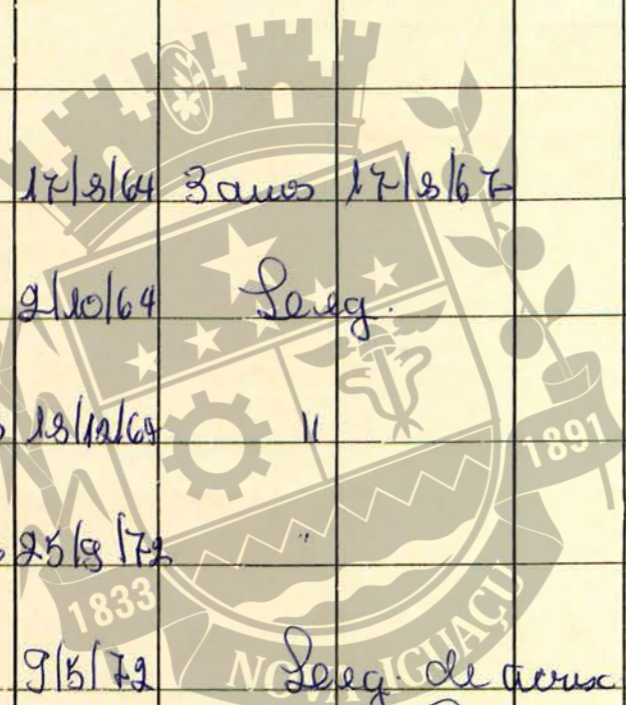 17/8/64 3 anos 17/8/67
9/10/64 Seg.
18/12/64 "
25/9/72 "
9/5/72 Seg. de
1833
1891
NOVA IGUAÇU